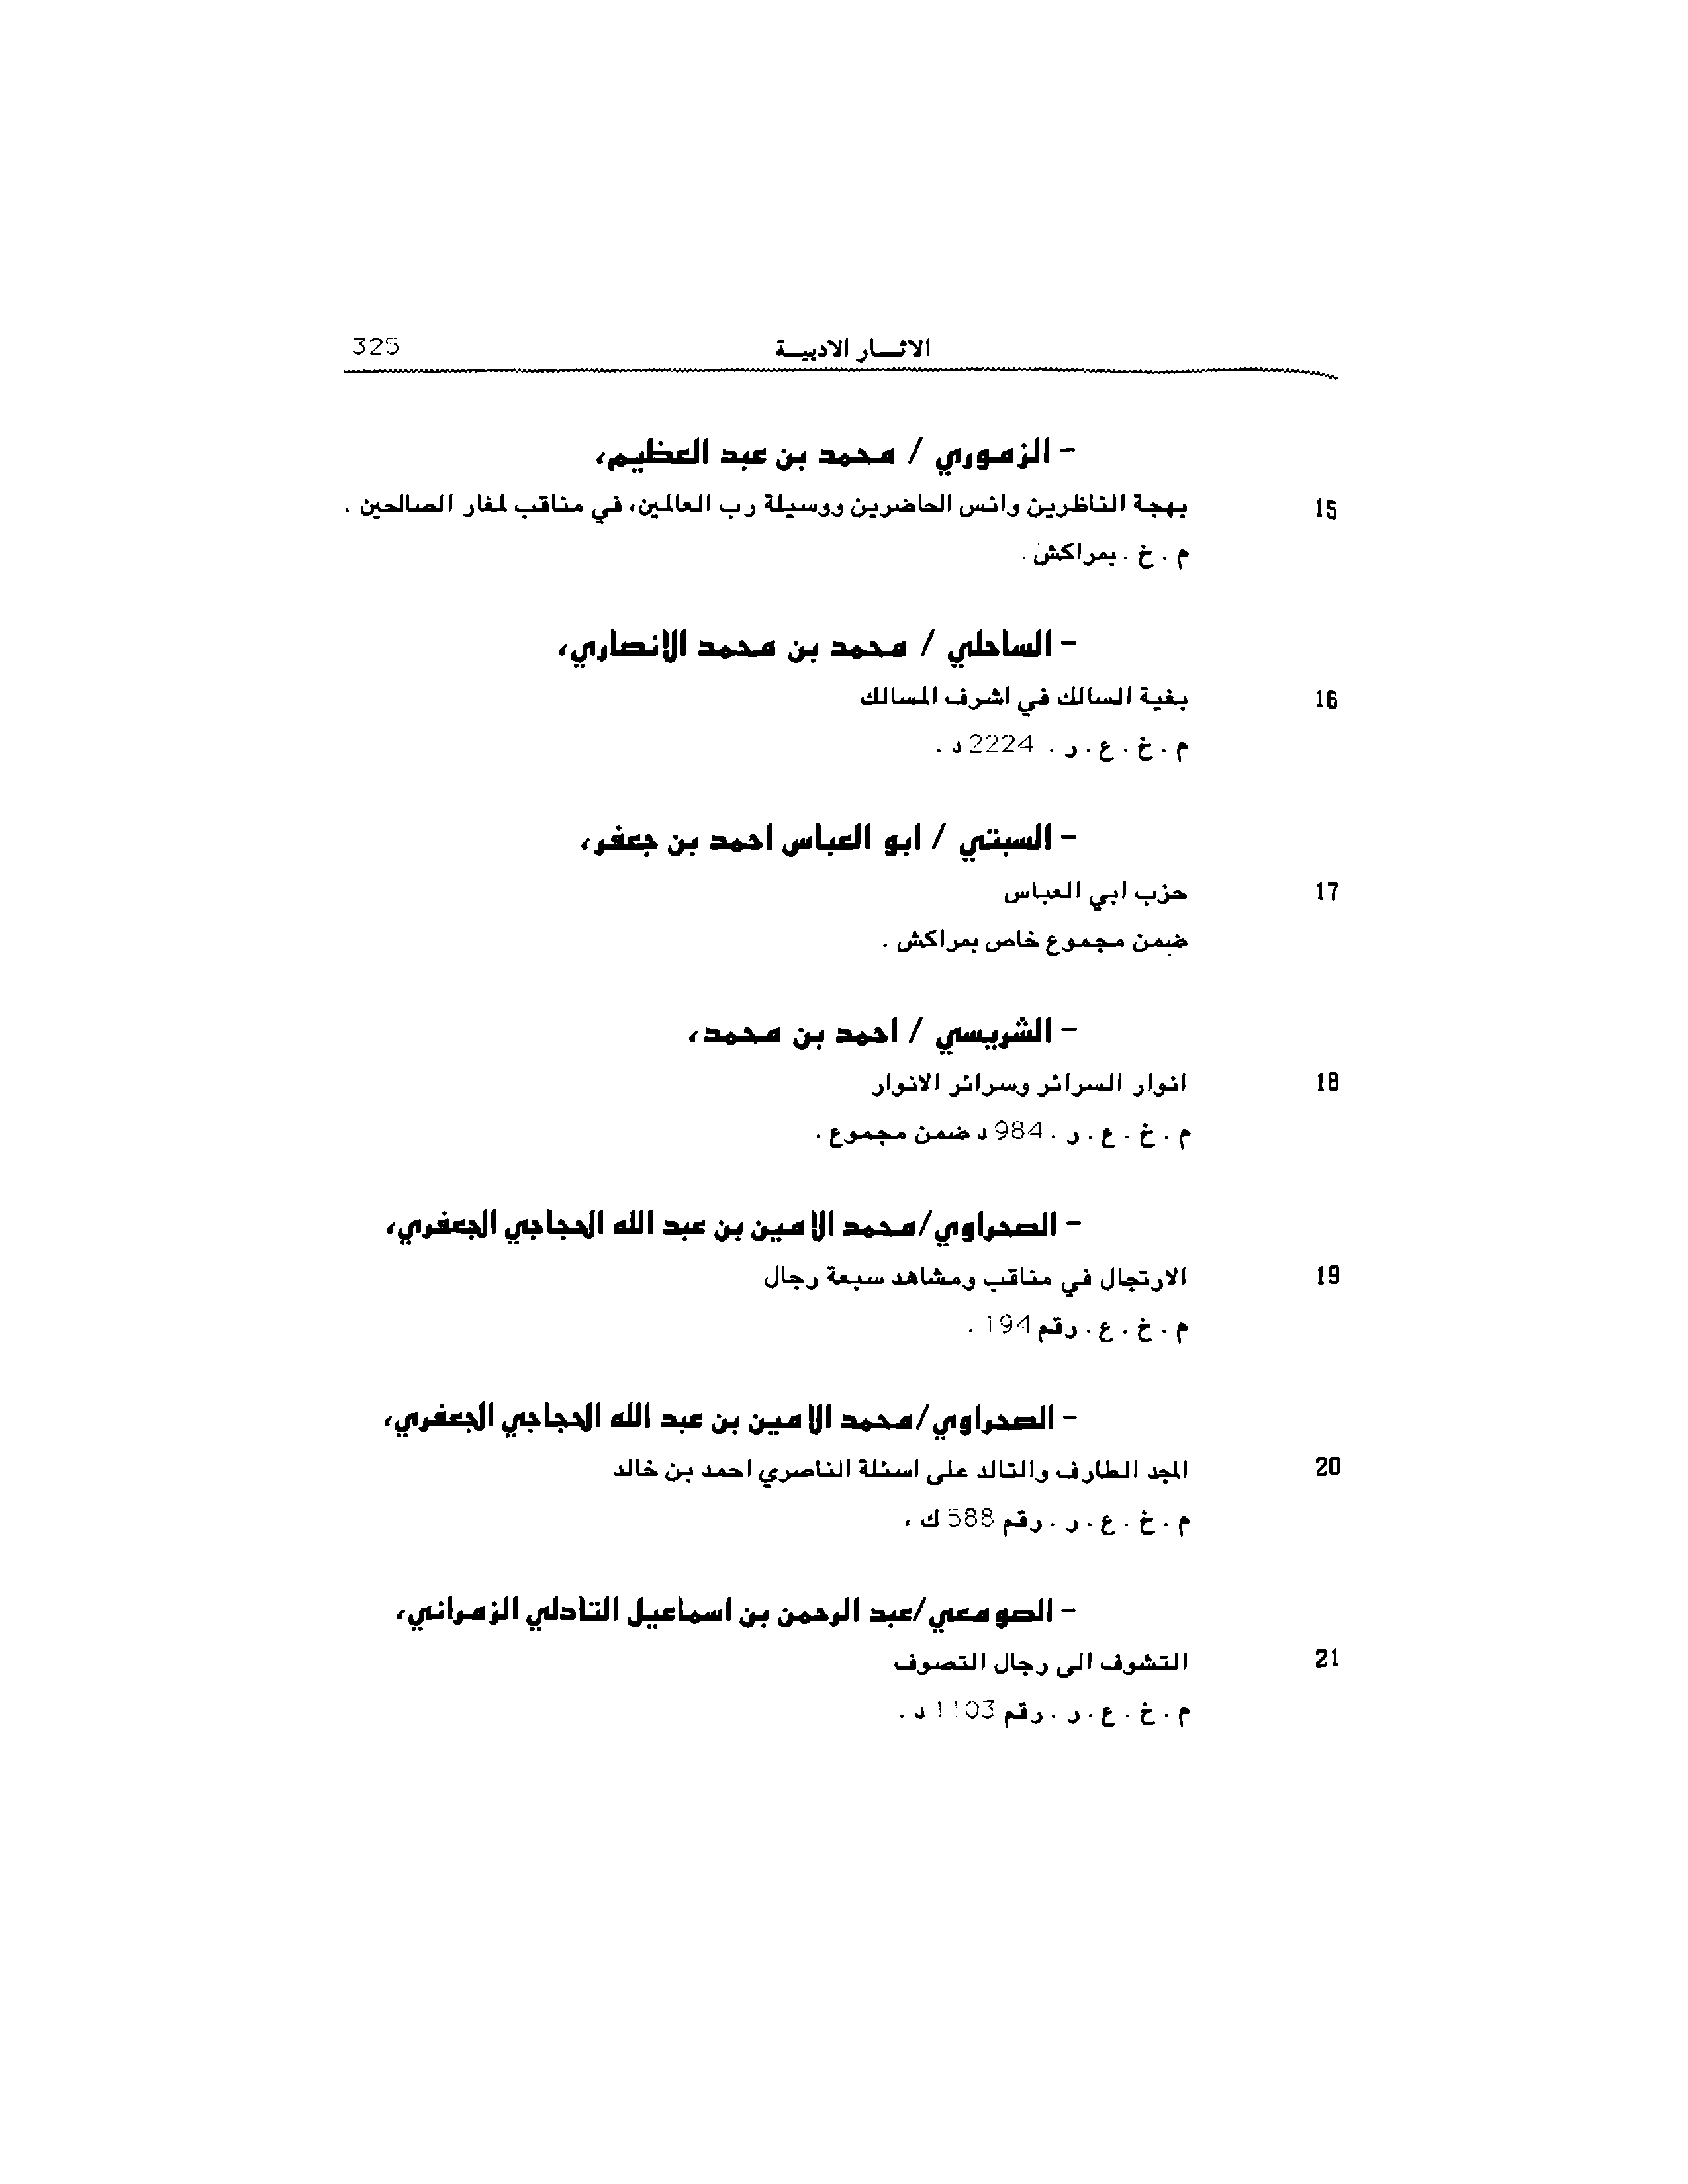 الاثـــار الادبيـــة 325
- الزموري / محمد بن عبد العظيم،
15 بهجة الناظرين وانس الحاضرين ووسيلة رب العالمين، في مناقب لمغار الصالحين .
م . خ . بمراكش .
- الساحلي / محمد بن محمد الانصاري،
16 بغية السالك في اشرف المسالك
م . خ . ع . ر . 2224 د .
- السبتي / ابو العباس احمد بن جعفر،
17 حزب ابي العباس
ضمن مجموع خاص بمراكش .
- الشريسي / احمد بن محمد،
18 انوار السرائر وسرائر الانوار
م . خ . ع . ر . 984 د ضمن مجموع .
- الصحراوي/محمد الامين بن عبد الله الحجاجي الجعفري،
19 الارتجال في مناقب ومشاهد سبعة رجال
م . خ . ع . رقم 194 .
- الصحراوي/محمد الامين بن عبد الله الحجاجي الجعفري،
20 المجد الطارف والتالد على اسئلة الناصري احمد بن خالد
م . خ . ع . ر . رقم 588 ك ،
- الصومعي/عبد الرحمن بن اسماعيل التادلي الزمراني،
21 التشوف الى رجال التصوف
م . خ . ع . ر . رقم 1103 د .